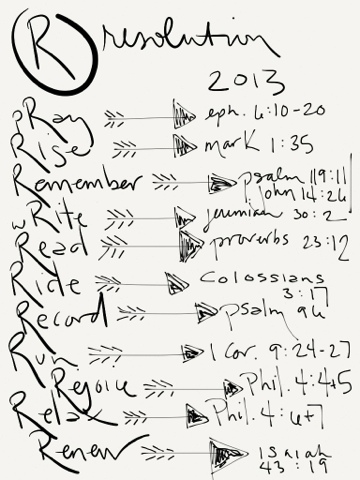 R resolution
2013
pRay eph. 6:10-20
Rise mark 1:35
Remember psalm 119:11
John 14:26
wRite jeremiah 30:2
Read proverbs 23:12
Ride Colossians
3:17
Record psalm 96
Run 1 Cor. 9:24-27
Rejoice Phil. 4:4+5
Relax Phil. 4:6+7
Renew Isaiah
43:19